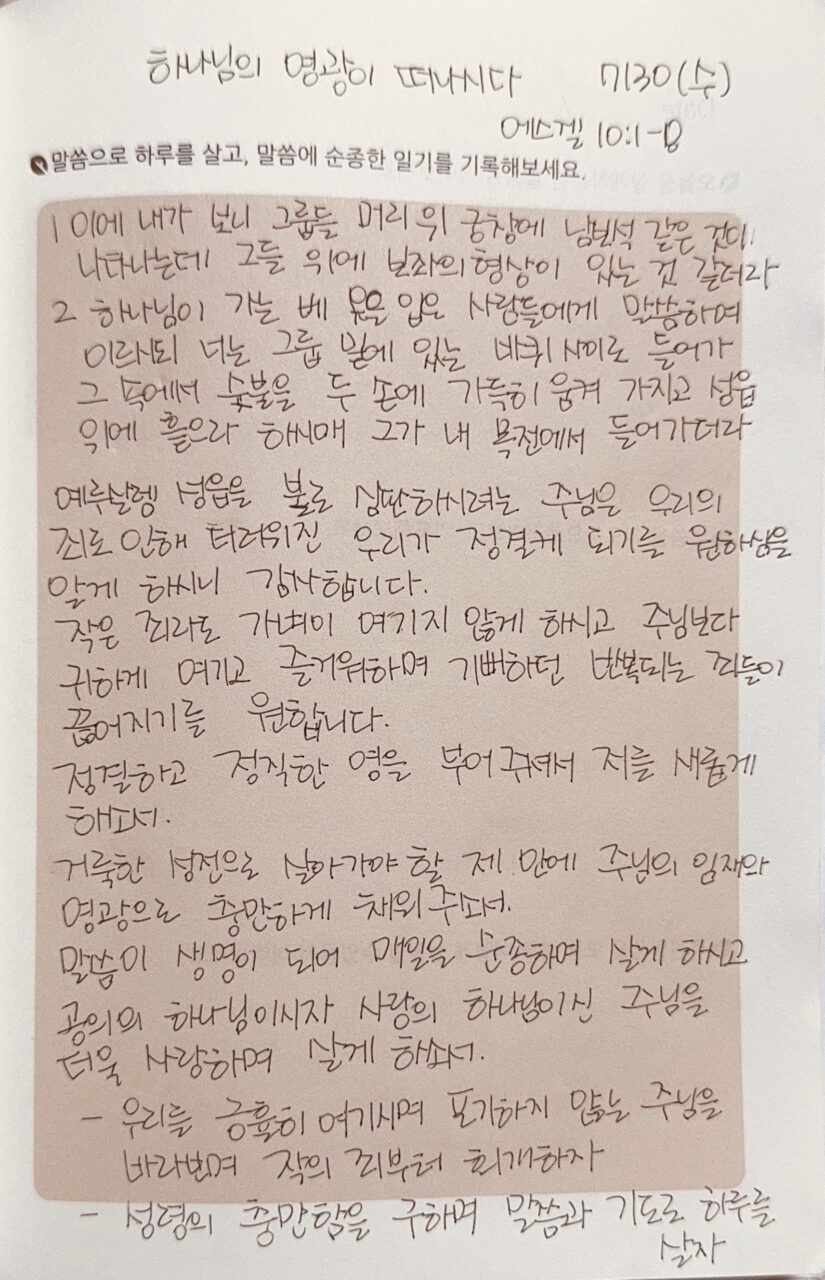 하나님의 영광이 떠나시다 7/30(수)
에스겔 10:1-8
말씀으로 하루를 살고, 말씀에 순종한 일기를 기록해보세요.
1 이에 내가 보니 그룹들 머리 위 궁창에 남보석 같은 것이
나타나는데 그들 위에 보좌의 형상이 있는 것 같더라
2 하나님이 가는 베 옷을 입은 사람들에게 말씀하여
이르시되 너는 그룹 밑에 있는 바퀴 사이로 들어가
그 속에서 숯불을 두 손에 가득히 움켜 가지고 성읍
위에 흩으라 하시매 그가 내 목전에서 들어가더라
예루살렘 성읍을 불로 심판하시려는 주님은 우리의
죄로 인해 더러워진 우리가 정결케 되기를 원하심을
알게 하시니 감사합니다.
작은 죄라도 가벼이 여기지 않게 하시고 주님보다
귀하게 여기고 즐거워하며 기뻐하던 반복되는 죄들이
끊어지기를 원합니다.
정결하고 정직한 영을 부어 주셔서 저를 새롭게
하소서.
거룩한 성전으로 살아가야 할 제 안에 주님의 임재와
영광으로 충만하게 채워주소서.
말씀이 생명이 되어 매일을 순종하며 살게 하시고
공의의 하나님이시자 사랑의 하나님이신 주님을
더욱 사랑하며 살게 하소서.
- 우리를 긍휼히 여기시며 포기하지 않는 주님을
바라보며 작의 죄부터 회개하자
- 성령의 충만함을 구하며 말씀과 기도로 하루를
살자